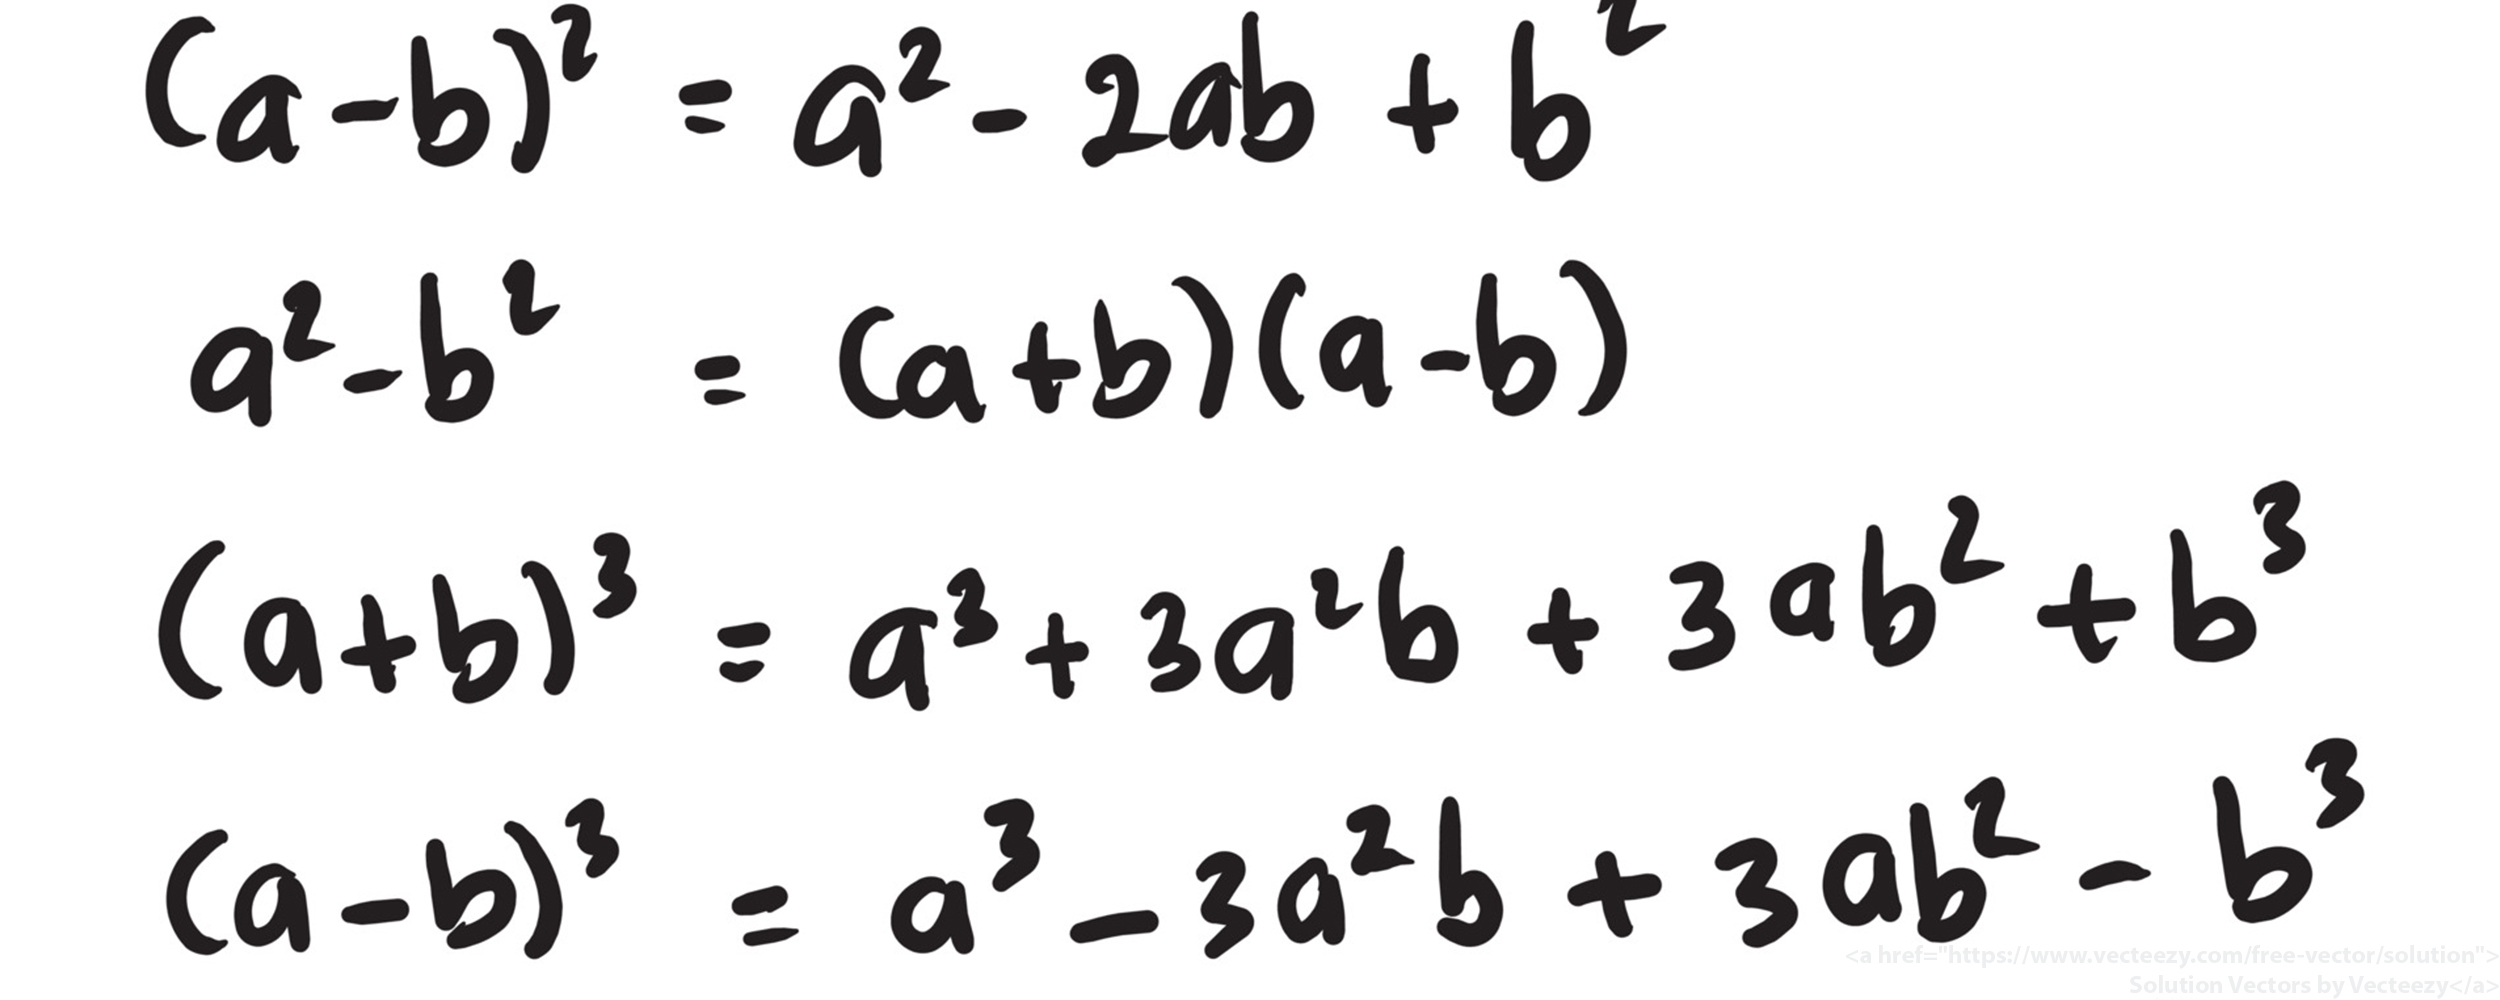 (a-b)² = a² - 2ab + b²
a² - b² = (a+b)(a-b)
(a+b)³ = a³ + 3a²b + 3ab² + b³
(a-b)³ = a³ - 3a²b + 3ab² - b³
<a href="https://www.vecteezy.com/free-vector/solution">
Solution Vectors by Vecteezy</a>